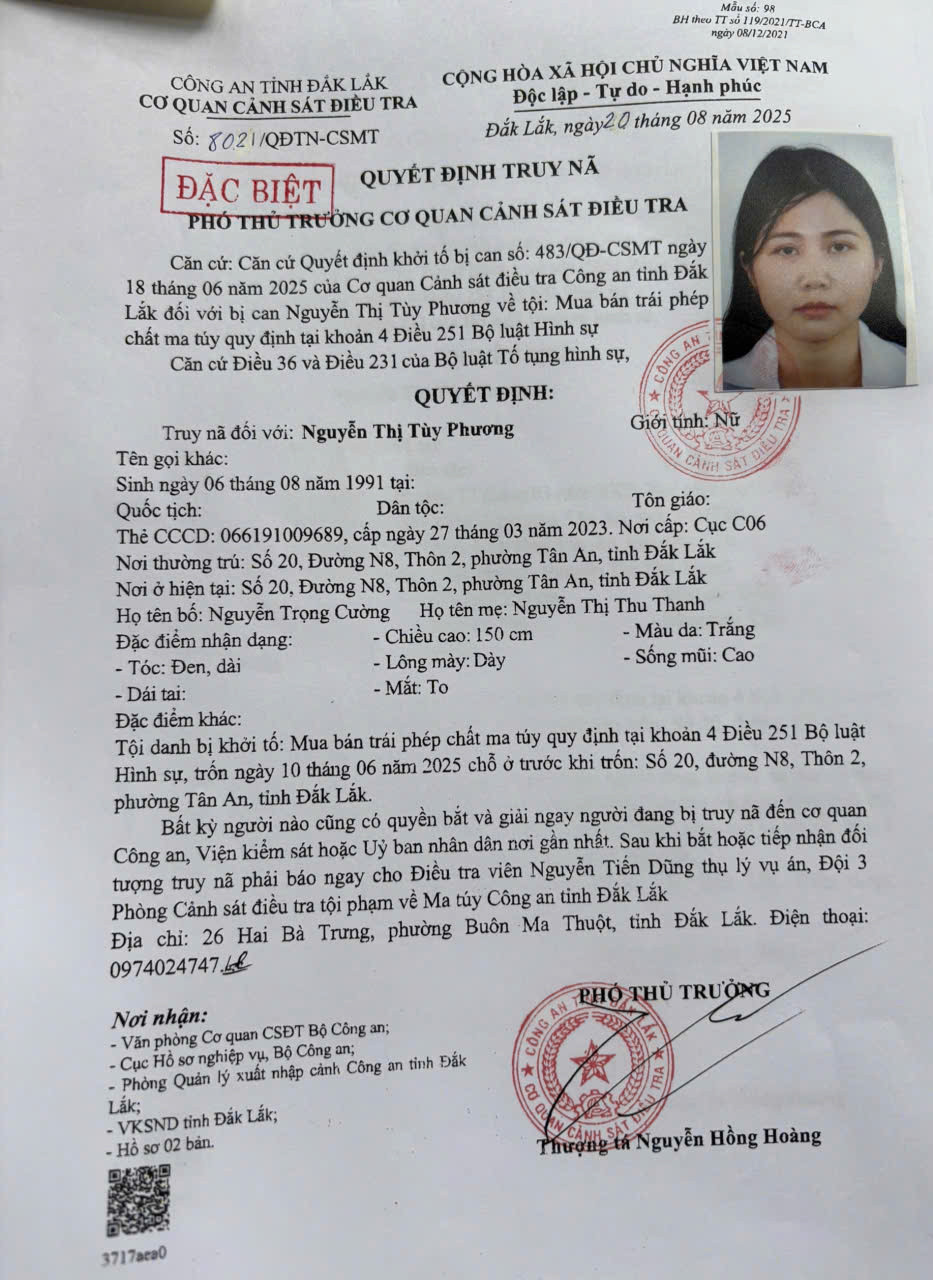 Mẫu số: 98
BH theo TT số 119/2021/TT-BCA
ngày 08/12/2021
CÔNG AN TỈNH ĐẮK LẮK
CƠ QUAN CẢNH SÁT ĐIỀU TRA
Số: 8021/QĐTN-CSMT
CỘNG HÒA XÃ HỘI CHỦ NGHĨA VIỆT NAM
Độc lập - Tự do - Hạnh phúc
Đắk Lắk, ngày 20 tháng 08 năm 2025
ĐẶC BIỆT
QUYẾT ĐỊNH TRUY NÃ
PHÓ THỦ TRƯỞNG CƠ QUAN CẢNH SÁT ĐIỀU TRA
Căn cứ: Căn cứ Quyết định khởi tố bị can số: 483/QĐ-CSMT ngày
18 tháng 06 năm 2025 của Cơ quan Cảnh sát điều tra Công an tỉnh Đắk
Lắk đối với bị can Nguyễn Thị Tùy Phương về tội: Mua bán trái phép
chất ma túy quy định tại khoản 4 Điều 251 Bộ luật Hình sự
Căn cứ Điều 36 và Điều 231 của Bộ luật Tố tụng hình sự,
QUYẾT ĐỊNH:
Truy nã đối với: Nguyễn Thị Tùy Phương Giới tính: Nữ
Tên gọi khác:
Sinh ngày 06 tháng 08 năm 1991 tại:
Quốc tịch: Dân tộc: Tôn giáo:
Thẻ CCCD: 066191009689, cấp ngày 27 tháng 03 năm 2023. Nơi cấp: Cục C06
Nơi thường trú: Số 20, Đường N8, Thôn 2, phường Tân An, tỉnh Đắk Lắk
Nơi ở hiện tại: Số 20, Đường N8, Thôn 2, phường Tân An, tỉnh Đắk Lắk
Họ tên bố: Nguyễn Trọng Cường Họ tên mẹ: Nguyễn Thị Thu Thanh
Đặc điểm nhận dạng: - Chiều cao: 150 cm - Màu da: Trắng
- Tóc: Đen, dài - Lông mày: Dày - Sống mũi: Cao
- Dái tai: - Mắt: To
Đặc điểm khác:
Tội danh bị khởi tố: Mua bán trái phép chất ma túy quy định tại khoản 4 Điều 251 Bộ luật
Hình sự, trốn ngày 10 tháng 06 năm 2025 chỗ ở trước khi trốn: Số 20, đường N8, Thôn 2,
phường Tân An, tỉnh Đắk Lắk.
Bất kỳ người nào cũng có quyền bắt và giải ngay người đang bị truy nã đến cơ quan
Công an, Viện kiểm sát hoặc Uỷ ban nhân dân nơi gần nhất. Sau khi bắt hoặc tiếp nhận đối
tượng truy nã phải báo ngay cho Điều tra viên Nguyễn Tiến Dũng thụ lý vụ án, Đội 3
Phòng Cảnh sát điều tra tội phạm về Ma túy Công an tỉnh Đắk Lắk
Địa chỉ: 26 Hai Bà Trưng, phường Buôn Ma Thuột, tỉnh Đắk Lắk. Điện thoại:
0974024747.
Nơi nhận:
- Văn phòng Cơ quan CSĐT Bộ Công an;
- Cục Hồ sơ nghiệp vụ, Bộ Công an;
- Phòng Quản lý xuất nhập cảnh Công an tỉnh Đắk
Lắk;
- VKSND tỉnh Đắk Lắk;
- Hồ sơ 02 bản.
PHÓ THỦ TRƯỞNG
CÔNG AN TỈNH ĐẮK LẮK
CƠ QUAN CẢNH SÁT ĐIỀU TRA
Thượng tá Nguyễn Hồng Hoàng
3717aea0